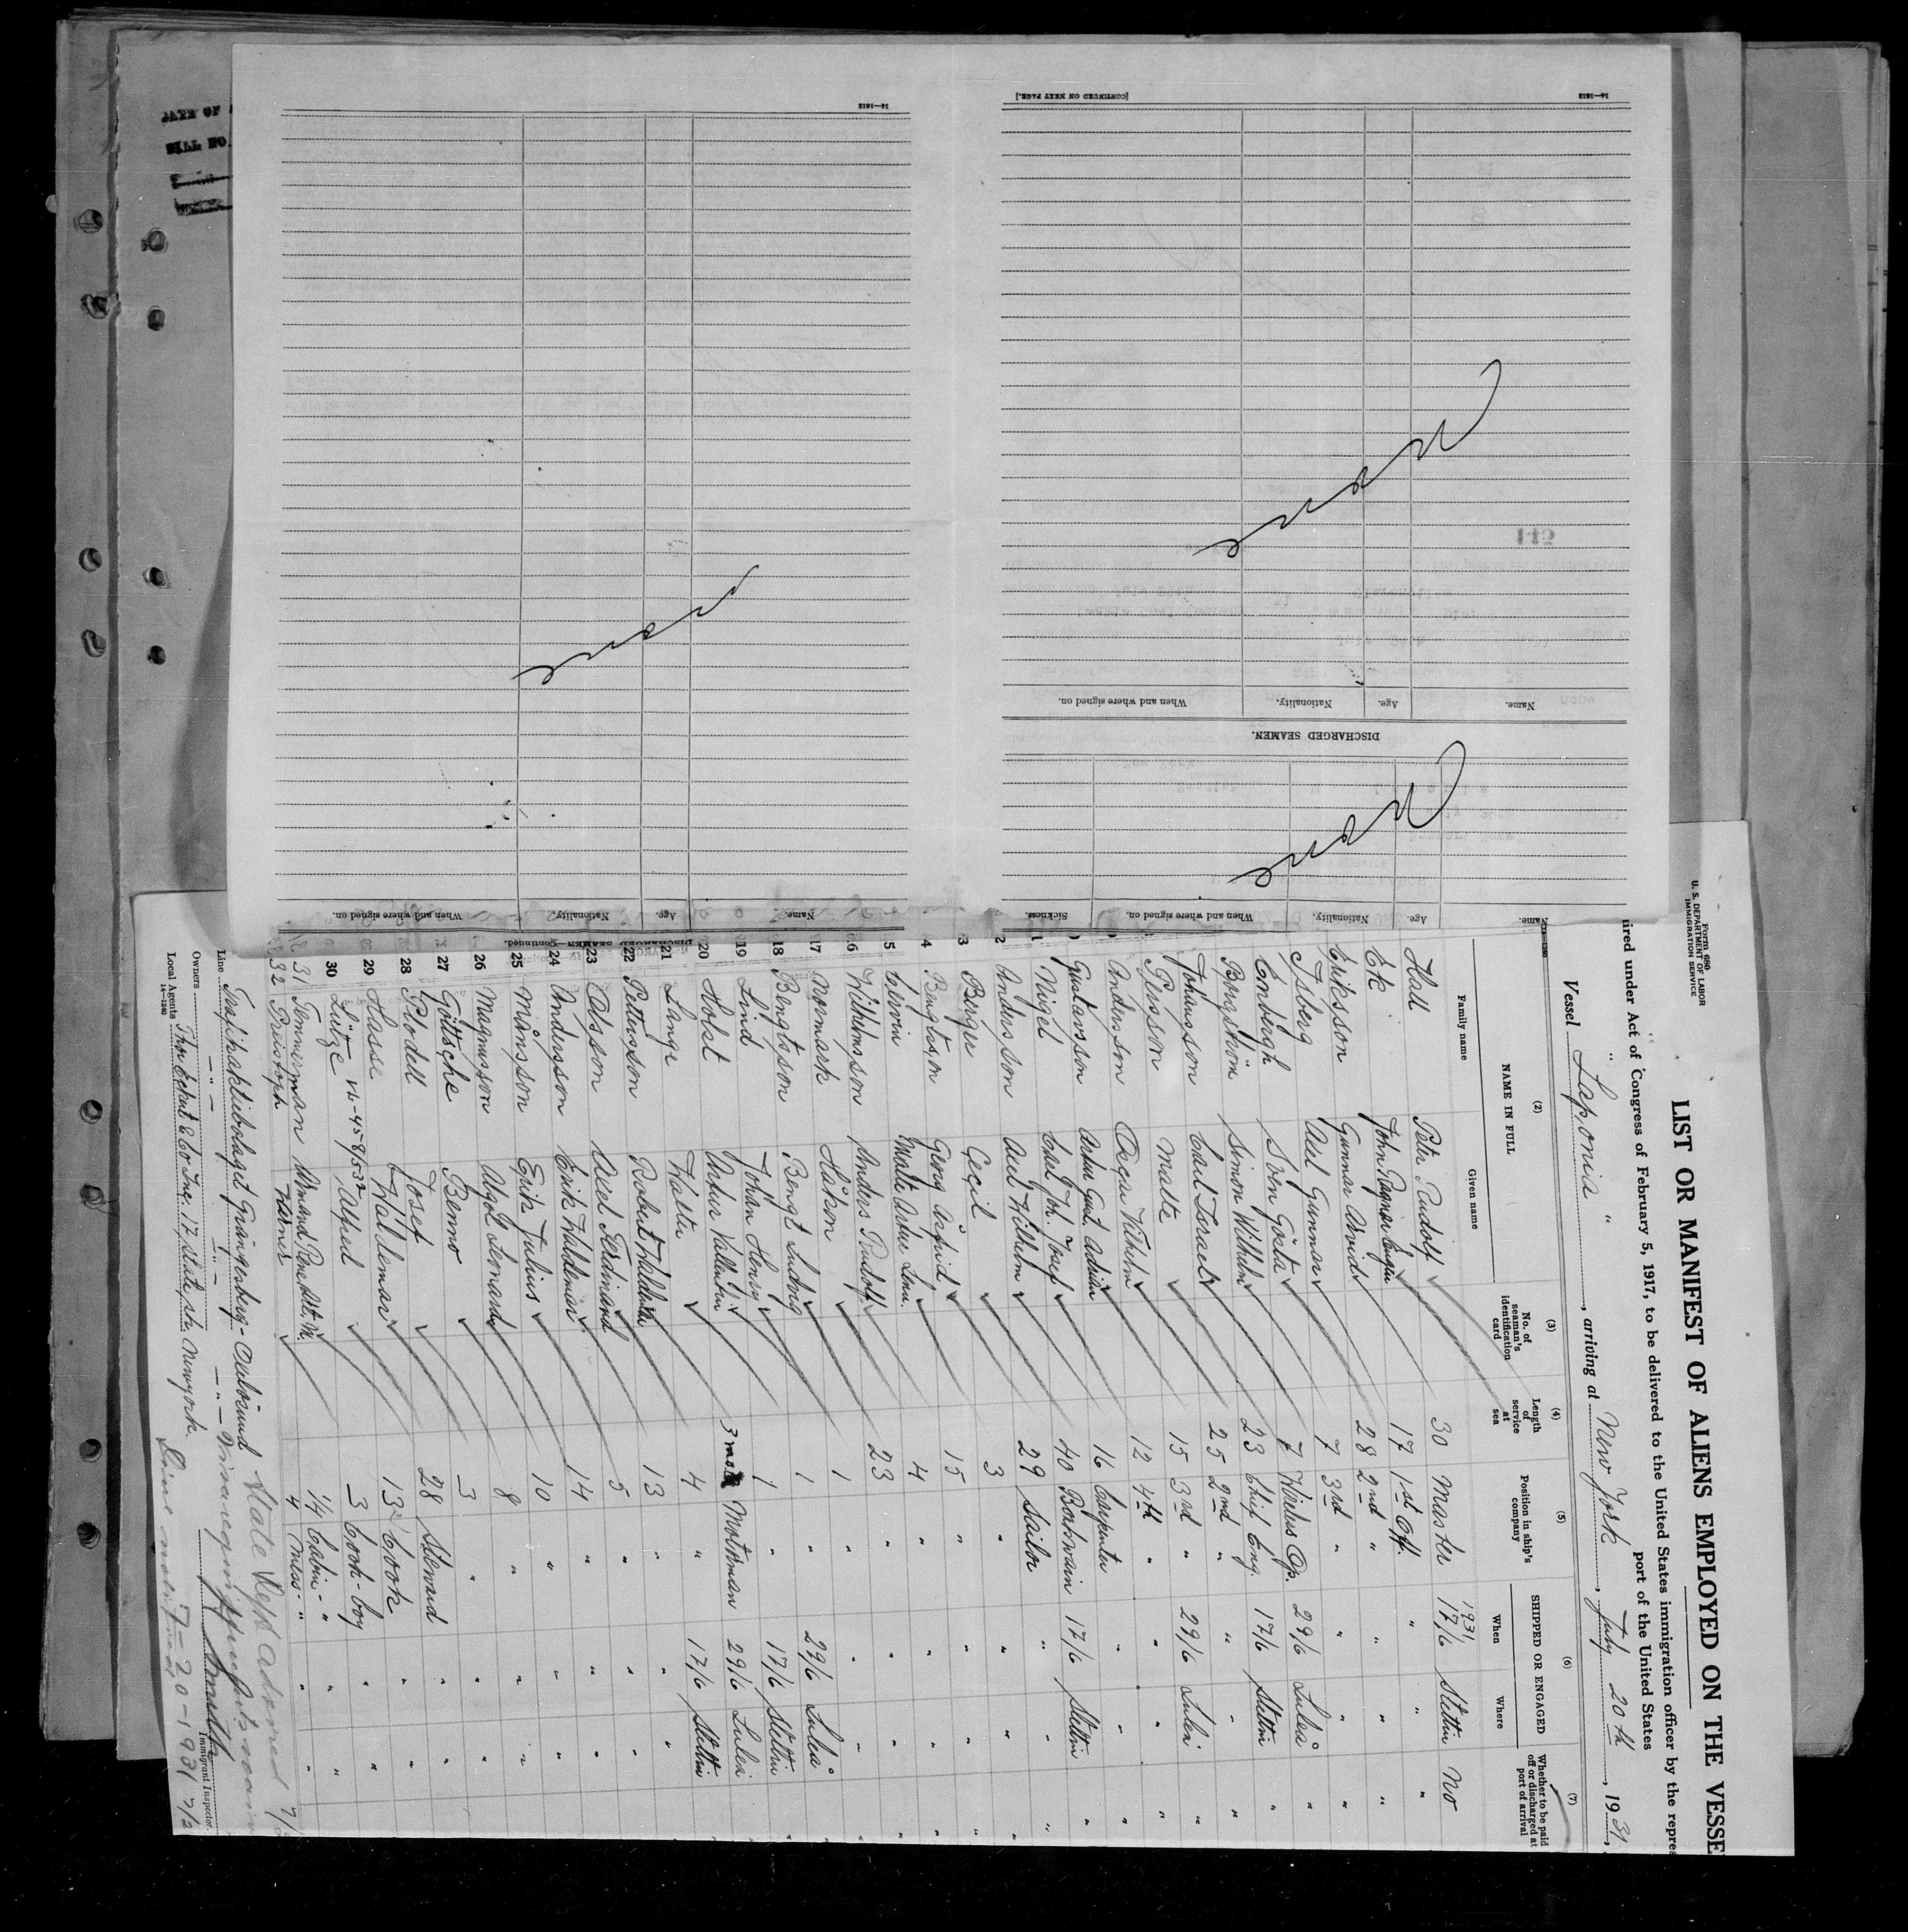 Form 680
U. S. DEPARTMENT OF LABOR
IMMIGRATION SERVICE
LIST OR MANIFEST OF ALIENS EMPLOYED ON THE VESSE
ired under Act of Congress of February 5, 1917, to be delivered to the United States immigration officer by the repres
port of the United States
Vessel " Laponia " , arriving at New York , July 20th , 1931,
(2) (3) (4) (5) (6) (7)
NAME IN FULL
Family name Given name
No. of seaman's identification card
Length of service at sea
Position in ship's company
SHIPPED OR ENGAGED
When Where
Whether to be paid off or discharged at port of arrival
1931
Hall Peter Rudolf 30 Master 17/6 Stettin No
Ek John Ragnar 17 1st Off. " " "
Eriksson Gunnar Arvid 28 2nd " " " "
Isberg Axel Gunnar 7 3rd " " " "
Enbergh Sven Gösta 7 Wireless Op. 29/6 Luleå "
Bergström Simon Wilhelm 23 Chief Eng. 17/6 Stettin "
Johansson Carl Israel 25 2nd " " " "
Persson Malte 15 3rd " 29/6 Luleå "
Andersson Oscar Vilhelm 12 4th " " " "
Gustavsson Artur Gust. Adrian 16 Carpenter " " "
Nigel Carl Joh. Josef 40 Boatswain 17/6 Stettin "
2 Andersson Axel Wilhelm 29 Sailor " " "
3 Berger Cecil 3 " " " "
4 Bengtsson Georg Astrid 15 " " " "
5 Elevin Malte Artur Lenn. 4 " " " "
16 Wilhelmsson Anders Rudolf 23 " " " "
17 Normark Håkon 1 " " " "
18 Bengtsson Bengt Ludvig 1 " 29/6 Luleå "
19 Lind Johan Henry 1 " 17/6 Stettin
20 Holst Artur Vallentin 3 mos Motorman 29/6 Luleå
21 Lange Walter 4 " 17/6 Stettin
22 Pettersson Robert 13 " " "
23 Olsson Axel Ferdinand 5 " " "
24 Andersson Erik Valdemar 14 " " "
25 Månsson Erik Julius 10 " " "
26 Magnusson Algot Leonard 8 " " "
27 Göttsche Benno 3 " " "
28 Plodell Josef 28 Steward " "
29 Hasse Waldemar 13 Cook " "
30 Lütze Alfred 3 Cook-boy " "
31 Temmerman Armand Rene 1/4 Cabin- " " "
32 Pristoph Heinz 4 Mess- " " "
Line Trafikaktiebolaget Grängesberg-Oxelösund
Owners — " — — " — — " —
Local Agents Thor Eckert & Co Inc. 17, State str. New York.
14—1240
Immigrant Inspector.
State Dept advised
Line notified 7-20-1931
Name. Age. Nationality. When and where signed on. Sickness.
None
DISCHARGED SEAMEN.
Name. Age. Nationality. When and where signed on.
None
[CONTINUED ON NEXT PAGE.]
14—1613
DISCHARGED SEAMEN—Continued.
Name. Age. Nationality. When and where signed on.
None
14—1613